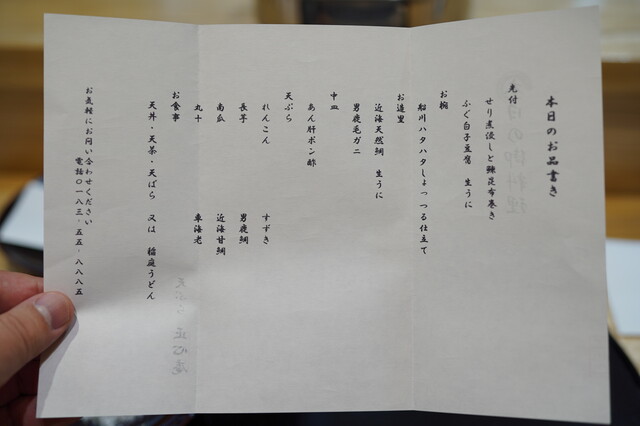 本日のお品書き
先付
せり煮浸しと鰊昆布巻き
ふぐ白子豆腐　生うに
お椀
船川ハタハタしょっつる仕立て
お造里
近海天然鯛　生うに
男鹿毛ガニ
中皿
あん肝ポン酢
天ぷら
れんこん　すずき
長芋　男鹿鯛
南瓜　近海甘鯛
丸十　車海老
お食事
天丼・天茶・天ばら　又は　稲庭うどん
お気軽にお問い合わせください
電話０１８３・５５・８８８５